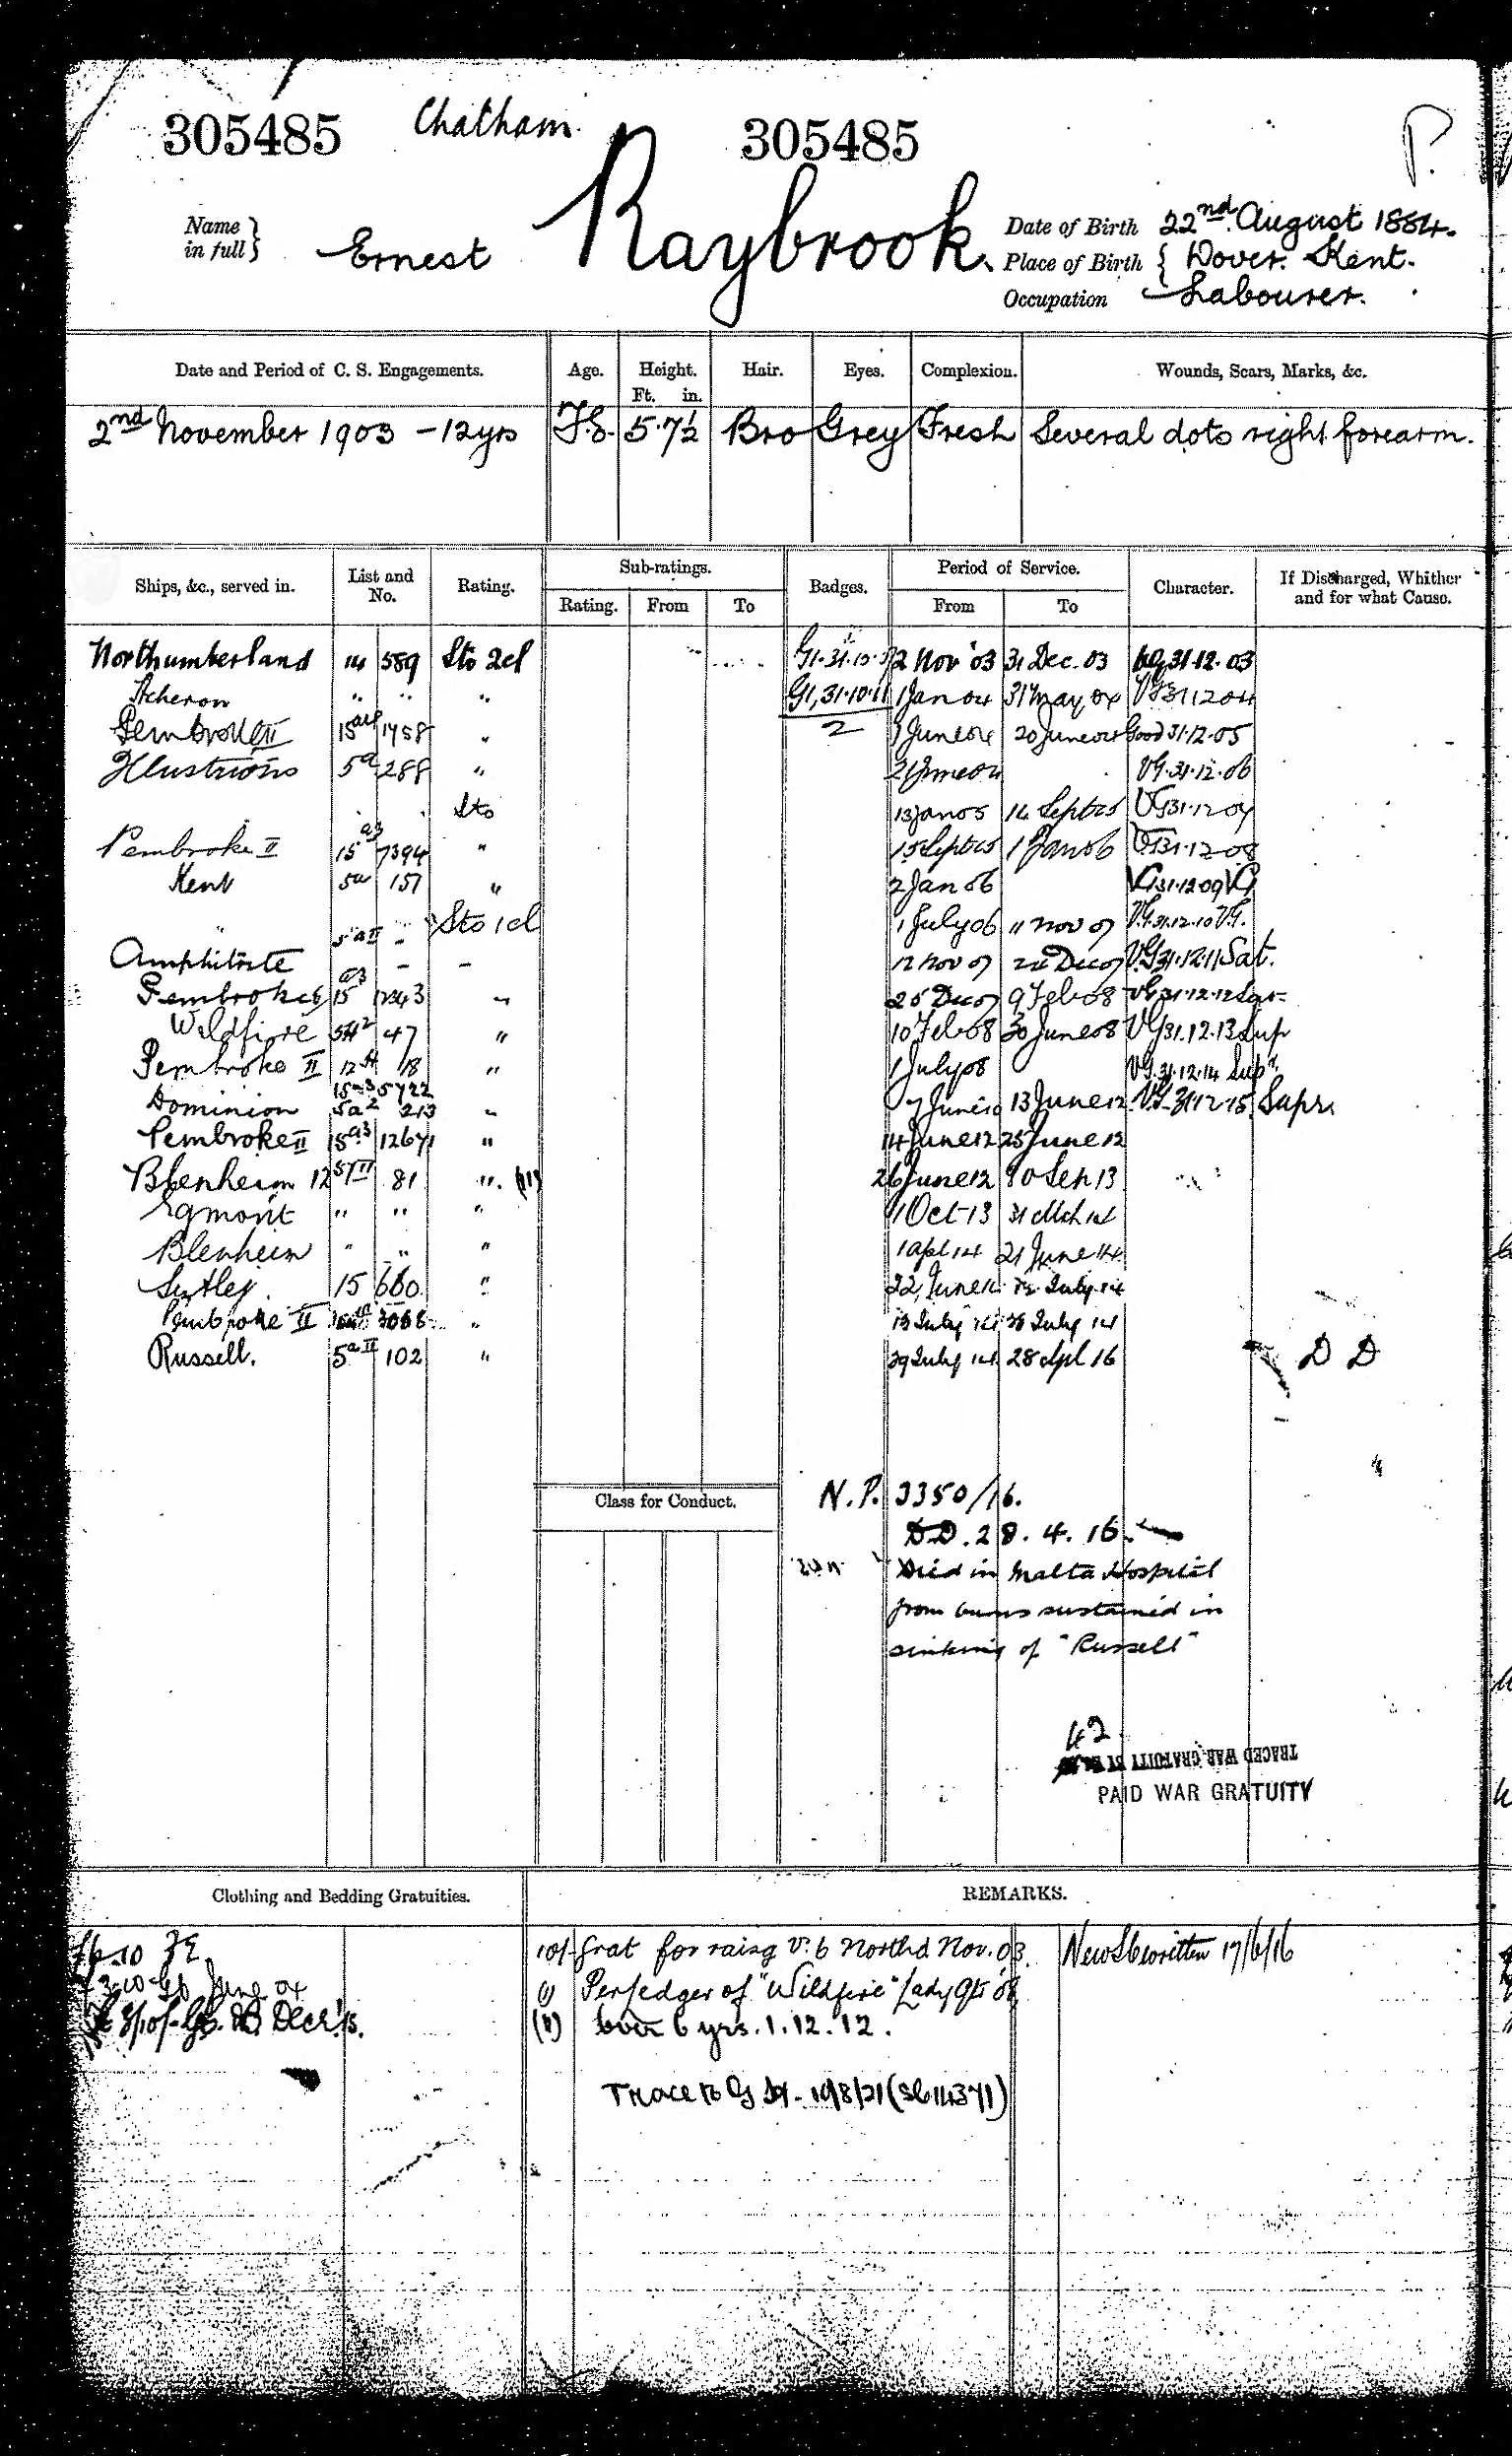 305485 Chatham. 305485 P.
Name in full } Ernest Raybrook.
Date of Birth 22nd August 1884.
Place of Birth { Dover. Kent.
Occupation Labourer.
Date and Period of C. S. Engagements. Age. Height. Ft. in. Hair. Eyes. Complexion. Wounds, Scars, Marks, &c.
2nd November 1903 - 12yrs 5.7½ Bro Grey Fresh Several dots right forearm.
Ships, &c., served in. List and No. Rating. Sub-ratings. Rating. From To Badges. Period of Service. From To Character. If Discharged, Whither and for what Cause.
Northumberland 14 589 Sto 2cl 2 Nov '03 31 Dec. 03 VG 31.12.03
Acheron " " " G1, 31.10.11 1 Jan 04 31 May 04 VG 31 12 04
Pembroke II 15 1458 " 2 1 June 04 20 June 04 Good 31.12.05
Illustrious 5a 288 " 21 June 04 VG. 31.12.06
Sto 13 Jan 05 14 Sept 05 VG 31.12 07
Pembroke II 15a3 7394 " 15 Sept 05 1 Jan 06 VG 31.12.08
Kent 5a 157 " 2 Jan 06 VG 31.12.09 VG
" 5aII - Sto 1cl 1 July 06 11 Nov 07 V.G. 31.12.10 V.G.
Amphitrite - - 12 Nov 07 24 Dec 07 VG 31.12.11 Sat.
Pembroke 15a3 " 25 Dec 07 9 Feb 08 VG 31.12.12 Sat
Wildfire 47 " 10 Feb 08 30 June 08 VG 31.12.13 Sup
Pembroke II 12 18 " 1 July 08 VG. 31.12.14 Supr.
15a3 5722
Dominion 5a2 213 " 7 June 10 13 June 12 VG 31.12.15 Supr.
Pembroke II 15a3 12671 " 14 June 12 25 June 12
Blenheim 12 81 " 26 June 12 30 Sep 13
Egmont " " " 1 Oct 13 31 Mch 14
Blenheim " " " 1 Apl 14 21 June 14
Sutlej. 15 660 " 22 June 14 12 July 14
Pembroke II 3066 " 13 July 14 28 July 14
Russell. 5aII 102 " 29 July 14 28 Apl 16 D D
Class for Conduct.
N.P. 3350/16.
DD. 28.4.16.
Died in Malta Hospital
from burns sustained in
sinking of "Russell"
42
TRACED WAR GRATUITY
PAID WAR GRATUITY
Clothing and Bedding Gratuities. REMARKS.
10/- Grat for raisg V. 6 North'd Nov. 03.
June 04
(1) Per Ledger of "Wildfire"
over 6 yrs. 1.12.12.
Trace